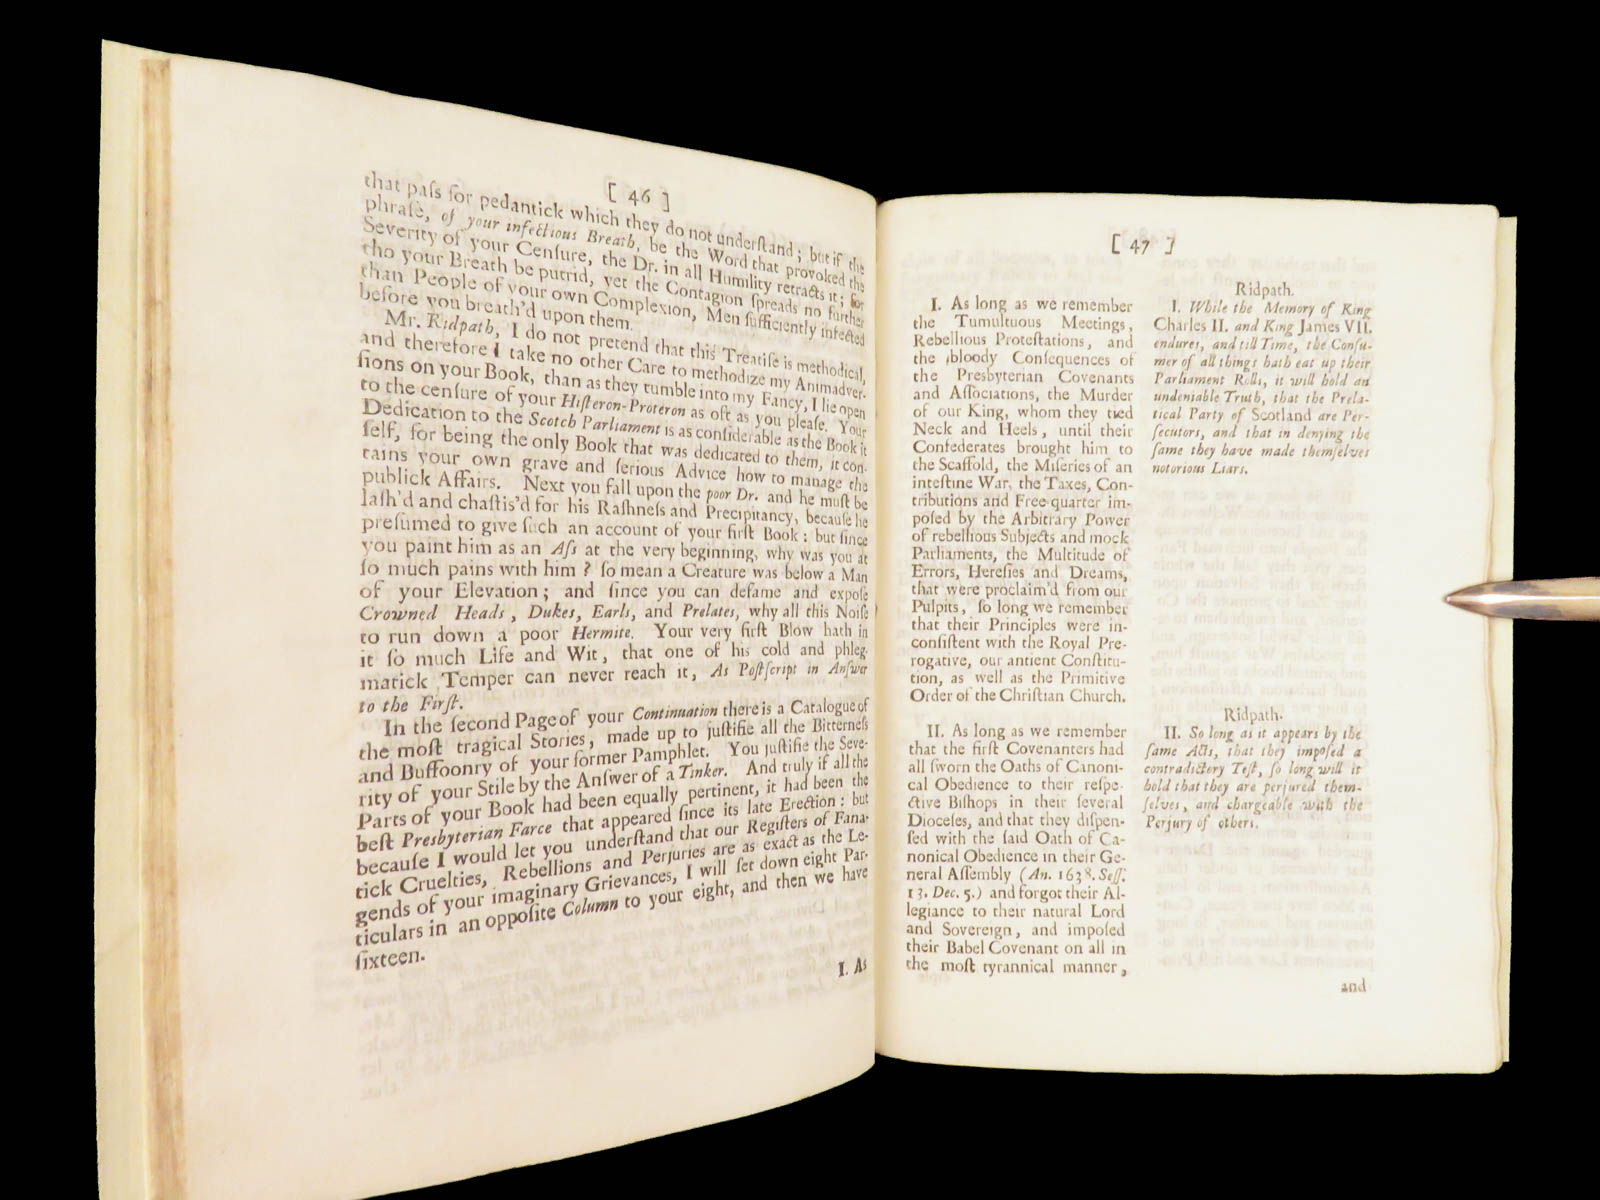 [ 46 ]
that paſs for pedantick which they do not underſtand; but if the
phraſe, of your infectious Breath, be the Word that provoked the
Severity of your Cenſure, the Dr. in all Humility retracts it; for
tho your Breath be putrid, yet the Contagion ſpreads no further
than People of your own Complexion, Men ſufficiently infected
before you breath'd upon them.
Mr. Ridpath, I do not pretend that this Treatiſe is methodical,
and therefore I take no other Care to methodize my Animadver-
ſions on your Book, than as they tumble into my Fancy, I lie open
to the cenſure of your Hiſteron-Proteron as oft as you pleaſe. Your
Dedication to the Scotch Parliament is as conſiderable as the Book it
ſelf, for being the only Book that was dedicated to them, it con-
tains your own grave and ſerious Advice how to manage the
publick Affairs. Next you fall upon the poor Dr. and he muſt be
laſh'd and chaſtis'd for his Raſhneſs and Precipitancy, becauſe he
preſumed to give ſuch an account of your firſt Book: but ſince
you paint him as an Aſs at the very beginning, why was you at
ſo much pains with him? ſo mean a Creature was below a Man
of your Elevation; and ſince you can defame and expoſe
Crowned Heads, Dukes, Earls, and Prelates, why all this Noiſe
to run down a poor Hermite. Your very firſt Blow hath in
it ſo much Life and Wit, that one of his cold and phleg-
matick Temper can never reach it, As Poſtſcript in Anſwer
to the Firſt.
In the ſecond Page of your Continuation there is a Catalogue of
the moſt tragical Stories, made up to juſtifie all the Bitterneſs
and Buffoonry of your former Pamphlet. You juſtifie the Seve-
rity of your Stile by the Anſwer of a Tinker. And truly if all the
Parts of your Book had been equally pertinent, it had been the
beſt Presbyterian Farce that appeared ſince its late Erection: but
becauſe I would let you underſtand that our Regiſters of Fana-
tick Cruelties, Rebellions and Perjuries are as exact as the Le-
gends of your imaginary Grievances, I will ſet down eight Par-
ticulars in an oppoſite Column to your eight, and then we have
ſixteen.
I. As
[ 47 ]
I. As long as we remember
the Tumultuous Meetings,
Rebellious Proteſtations, and
the bloody Conſequences of
the Presbyterian Covenants
and Aſſociations, the Murder
of our King, whom they tied
Neck and Heels, until their
Confederates brought him to
the Scaffold, the Miſeries of an
inteſtine War, the Taxes, Con-
tributions and Free-quarter im-
poſed by the Arbitrary Power
of rebellious Subjects and mock
Parliaments, the Multitude of
Errors, Hereſies and Dreams,
that were proclaim'd from our
Pulpits, ſo long we remember
that their Principles were in-
conſiſtent with the Royal Pre-
rogative, our antient Conſtitu-
tion, as well as the Primitive
Order of the Chriſtian Church.
II. As long as we remember
that the firſt Covenanters had
all ſworn the Oaths of Canoni-
cal Obedience to their reſpe-
ctive Biſhops in their ſeveral
Dioceſes, and that they diſpen-
ſed with the ſaid Oath of Ca-
nonical Obedience in their Ge-
neral Aſſembly (An. 1638. Seſſ.
13. Dec. 5.) and forgot their Al-
legiance to their natural Lord
and Sovereign, and impoſed
their Babel Covenant on all in
the moſt tyrannical manner,
Ridpath.
I. While the Memory of King
Charles II. and King James VII.
endures, and till Time, the Conſu-
mer of all things hath eat up their
Parliament Rolls, it will hold an
undeniable Truth, that the Prela-
tical Party of Scotland are Per-
ſecutors, and that in denying the
ſame they have made themſelves
notorious Liars.
Ridpath.
II. So long as it appears by the
ſame Acts, that they impoſed a
contradictory Teſt, ſo long will it
hold that they are perjured them-
ſelves, and chargeable with the
Perjury of others.
and